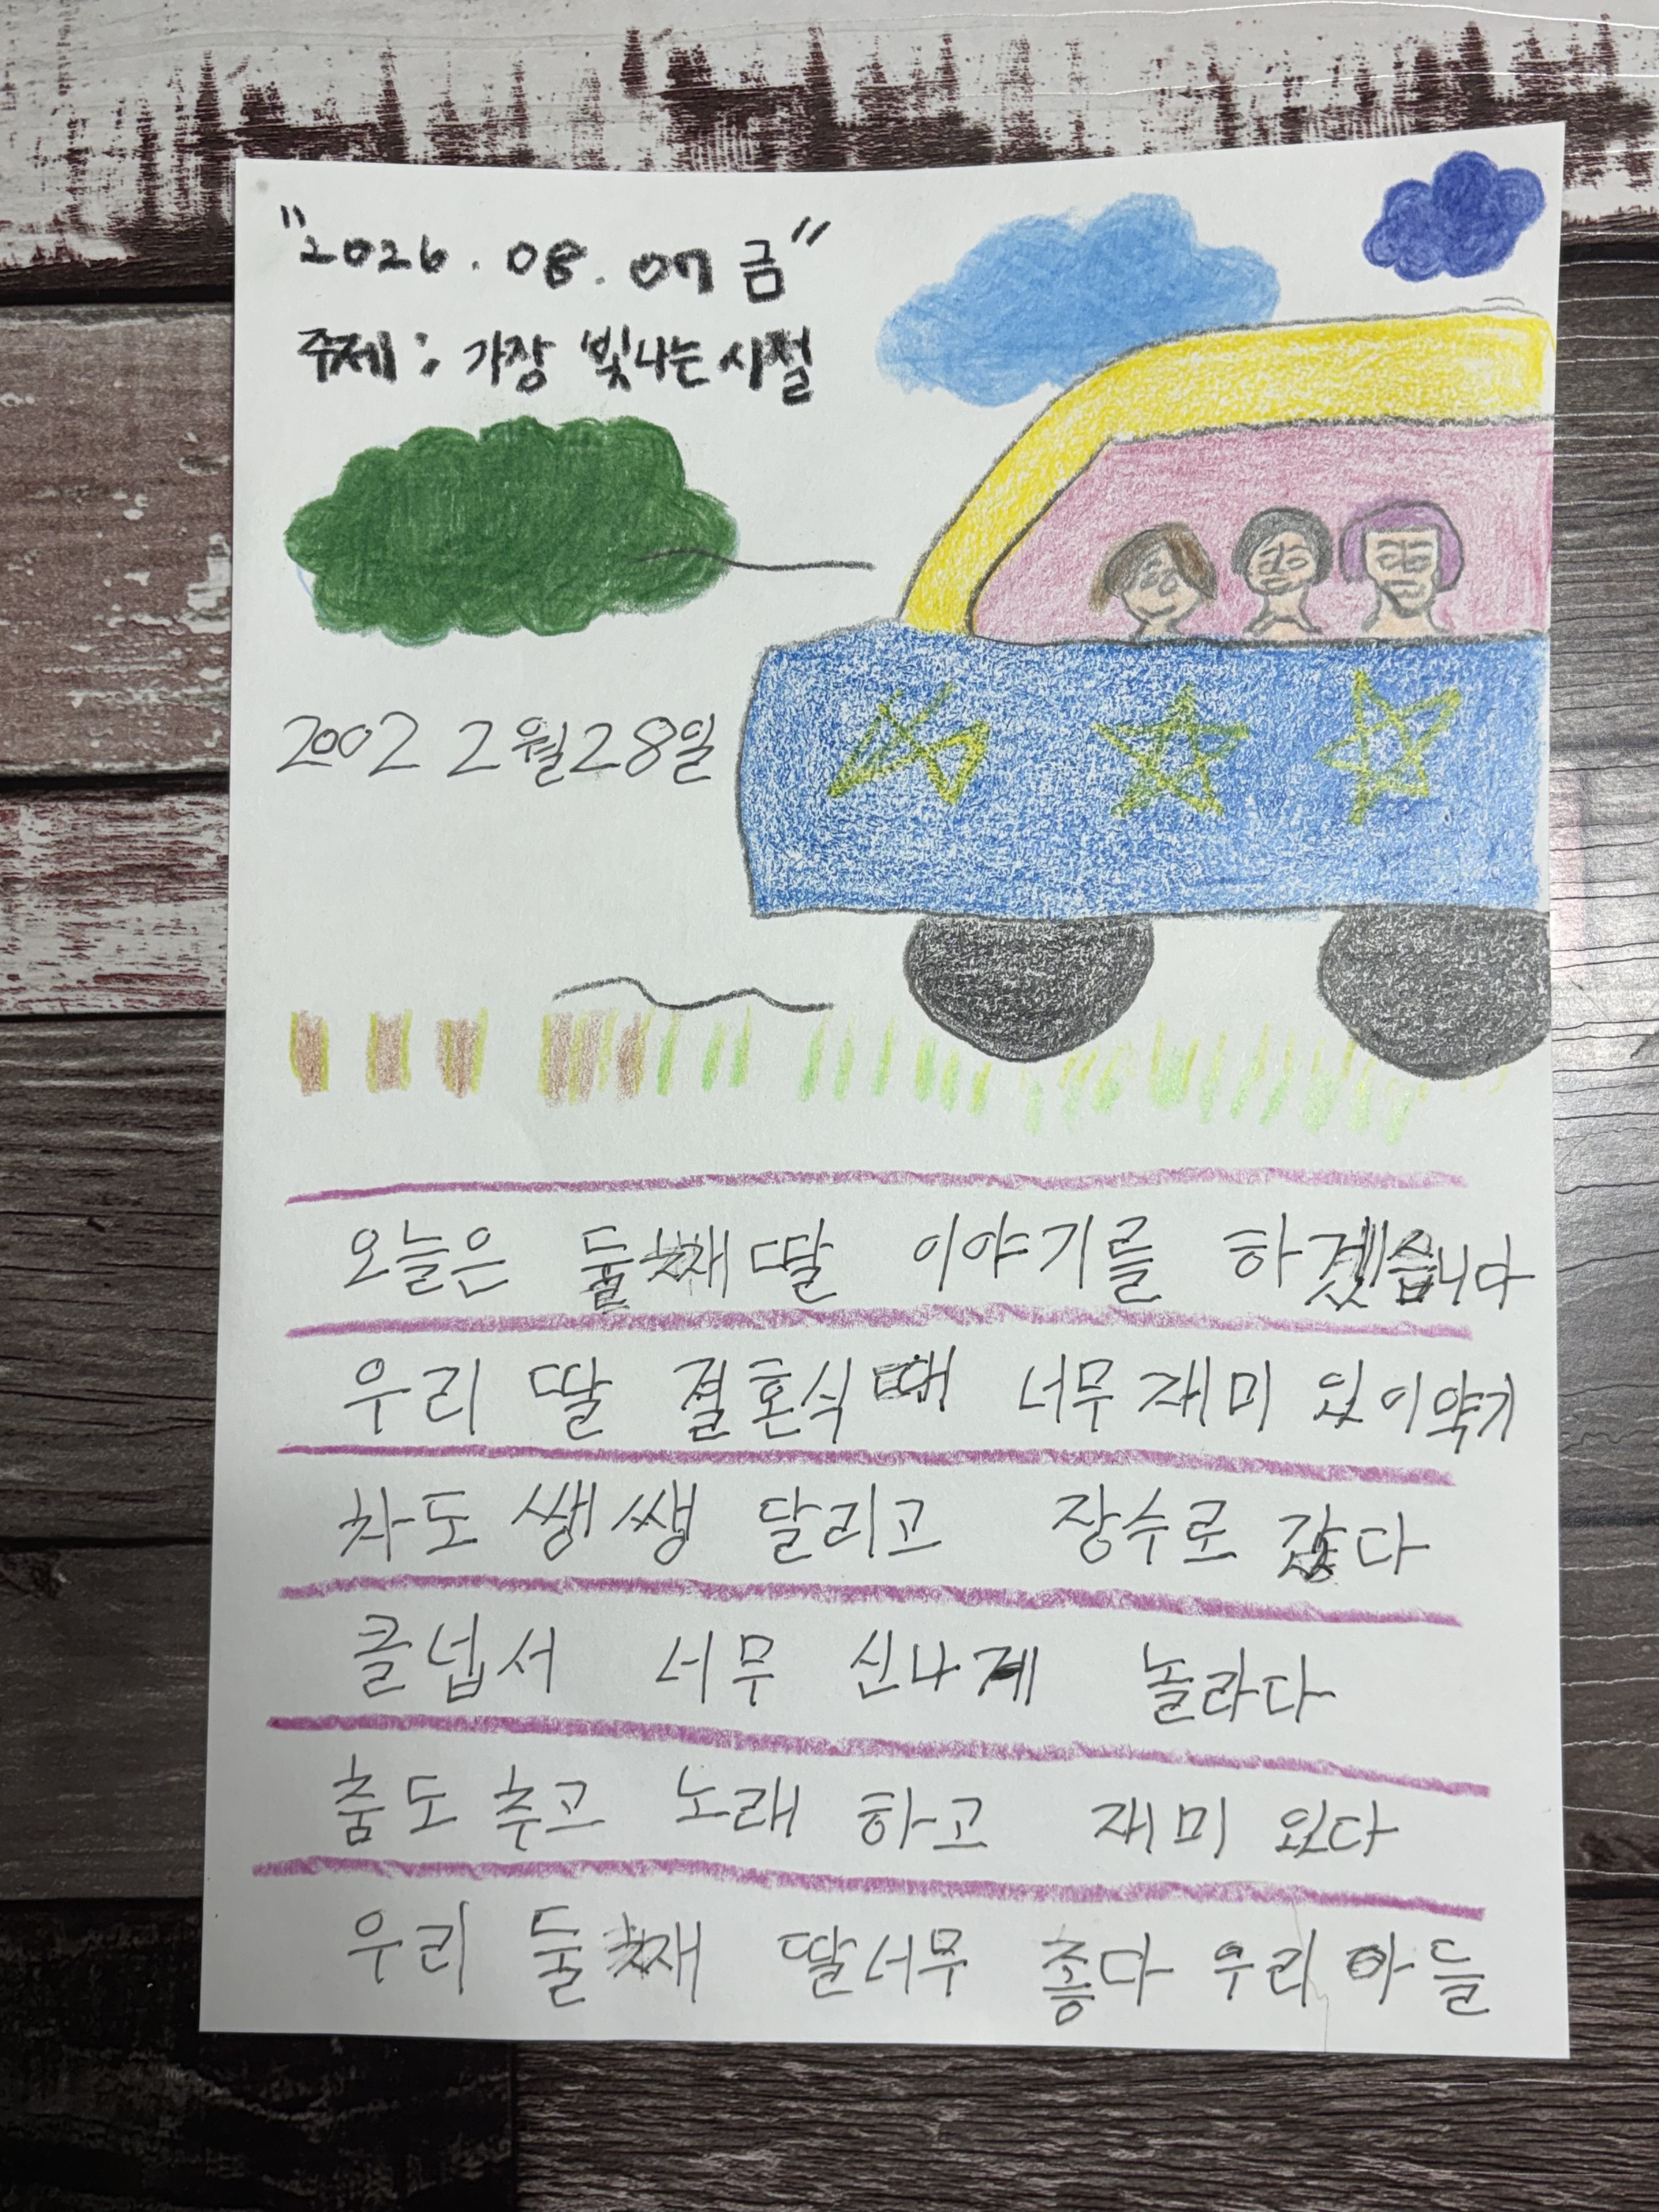 "2026. 08. 07 금"
주제: 가장 빛나는 시절
2002 2월28일
오늘은 둘째딸 이야기를 하겠습니다
우리 딸 결혼식때 너무 재미 있이야기
차도 쌩쌩 달리고 장수로 갔다
클넙서 너무 신나게 놀라다
춤도 추고 노래 하고 재미 있다
우리 둘째 딸너무 좋다 우리 아들